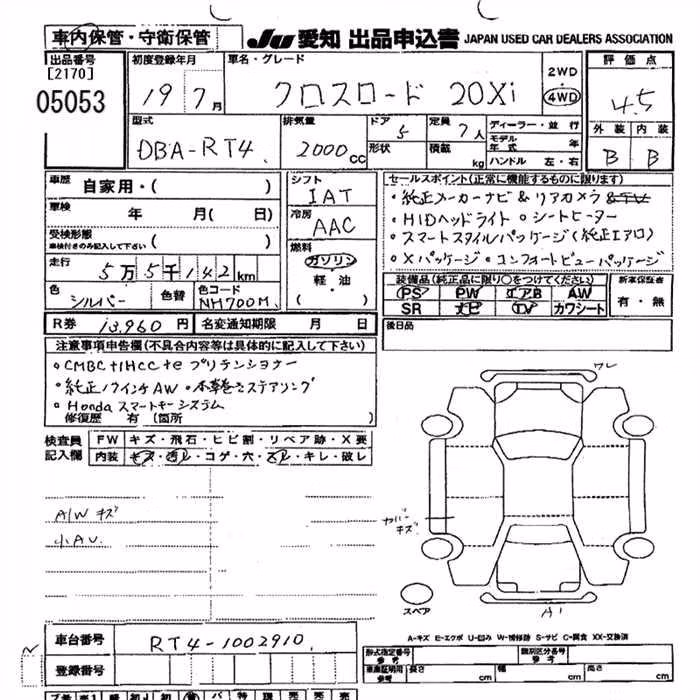 車内保管・守衛保管 JU 愛知 出品申込書 JAPAN USED CAR DEALERS ASSOCIATION
出品番号 初度登録年月 車名・グレード 2WD 評価点
[2170] 19 7月 クロスロード 20Xi 4WD 4.5
05053
型式 排気量 ドア 5 定員 7人 ディーラー・並行 外装 内装
DBA-RT4 2000cc 形状 積載 kg モデル年式 年 B B
ハンドル 左・右
車歴 自家用・( ) シフト IAT セールスポイント(正常に機能するものに限ります)
車検 年 月( 日) 冷房 AAC ・純正メーカーナビ&リアカメラ
受検形態 ・HIDヘッドライト ・シートヒーター
車検付きのみ記入して下さい ( ) 燃料 ガソリン ・スマートスタイルパッケージ(純正エアロ)
走行 5万5千142km 軽油 ・Xパッケージ ・コンフォートビューパッケージ
色 シルバー 色替 色コード NH700M ( ) 装備品(純正品に限り○をつけてください) 新車保証書
PS PW エアB AW 有・無
SR ナビ TV カワシート
R券 13,960円 名変通知期限 月 日 後日品
注意事項申告欄(不具合内容等は具体的に記入して下さい)
・CMBC+IHCC+eプリテンショナー ワレ
・純正17インチAW ・本革巻きステアリング
・Honda スマートキーシステム
修復歴 有 (箇所 )
検査員記入欄 FW キズ・飛石・ヒビ割・リペア跡・X要
内装 キズ・汚レ・コゲ・穴・スレ・キレ・破レ
A/W キズ カバーキズ
小AU
スペア A1
A-キズ E-エクボ U-凹み W-補修跡 S-サビ C-腐食 XX-交換済
車台番号 RT4-1002910 形式指定番号 参考 類別区分番号 参考
登録番号 車庫証明用 参考 長さ cm 幅 cm 高さ cm